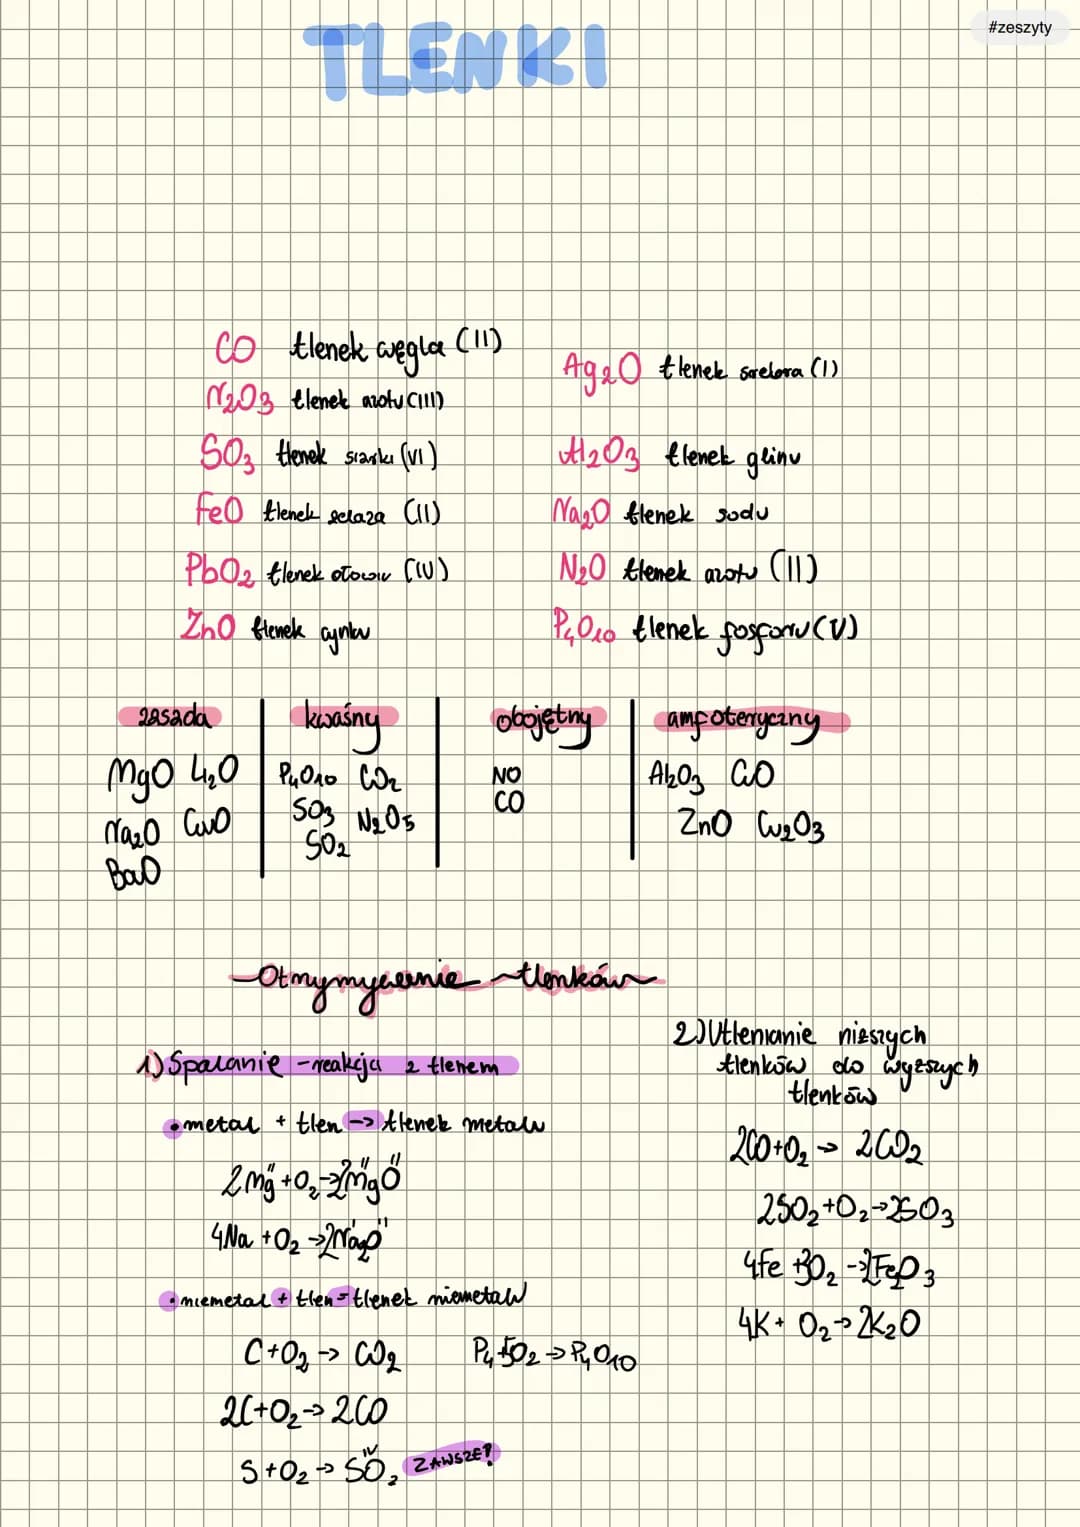 #zeszyty
TLENKI
CO tlenek węgla (II)
N2O3 tlenek azotu (III)
SO3 tlenek siarki (VI)
FeO tlenek żelaza (II)
PbO2 tlenek ołowiu (IV)
ZnO tlenek cynku
Ag2O tlenek srebra (I)
Al2O3 tlenek glinu
Na2O tlenek sodu
N2O tlenek azotu (II)
P4O10 tlenek fosforu (V)
zasada | kwaśny | objętny | amfoteryczny
MgO Li2O | P4O10 CO2 | NO | Al2O3
Na2O CuO | SO3 N2O5 | CO | ZnO
BaO | SO2
tlenków
1) Spalanie - reakcja z tlenem
• metal + tlen -> tlenek metalu
2Mg + O2 -> 2MgO
4Na + O2 -> 2Na2O
• niemetal + tlen = tlenek niemetalu
C + O2 -> CO2
P4 + 5O2 -> P4O10
2C + O2 -> 2CO
S + O2 -> SO2 ZAWSZE!
2) Utlenianie niższych
tlenków do wyższych
tlenków
2CO + O2 -> 2CO2
2SO2 + O2 -> 2SO3
4Fe + 3O2 -> 2Fe2O3
4K + O2 -> 2K2O